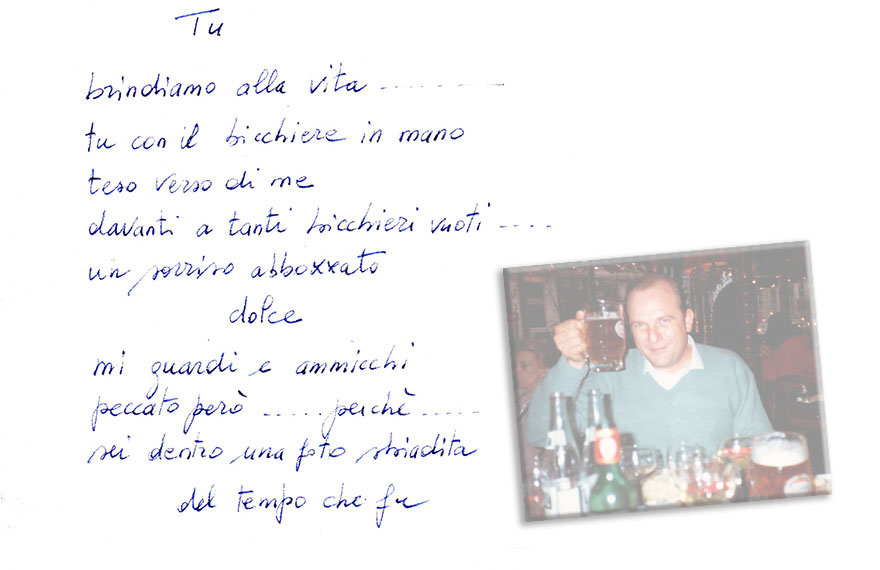 Tu
brindiamo alla vita ..........
tu con il bicchiere in mano
teso verso di me
davanti a tanti bicchieri vuoti ....
un sorriso abboxxato
dolce
mi guardi e ammicchi
peccato però ..... perchè .....
sei dentro una foto sbiadita
del tempo che fu